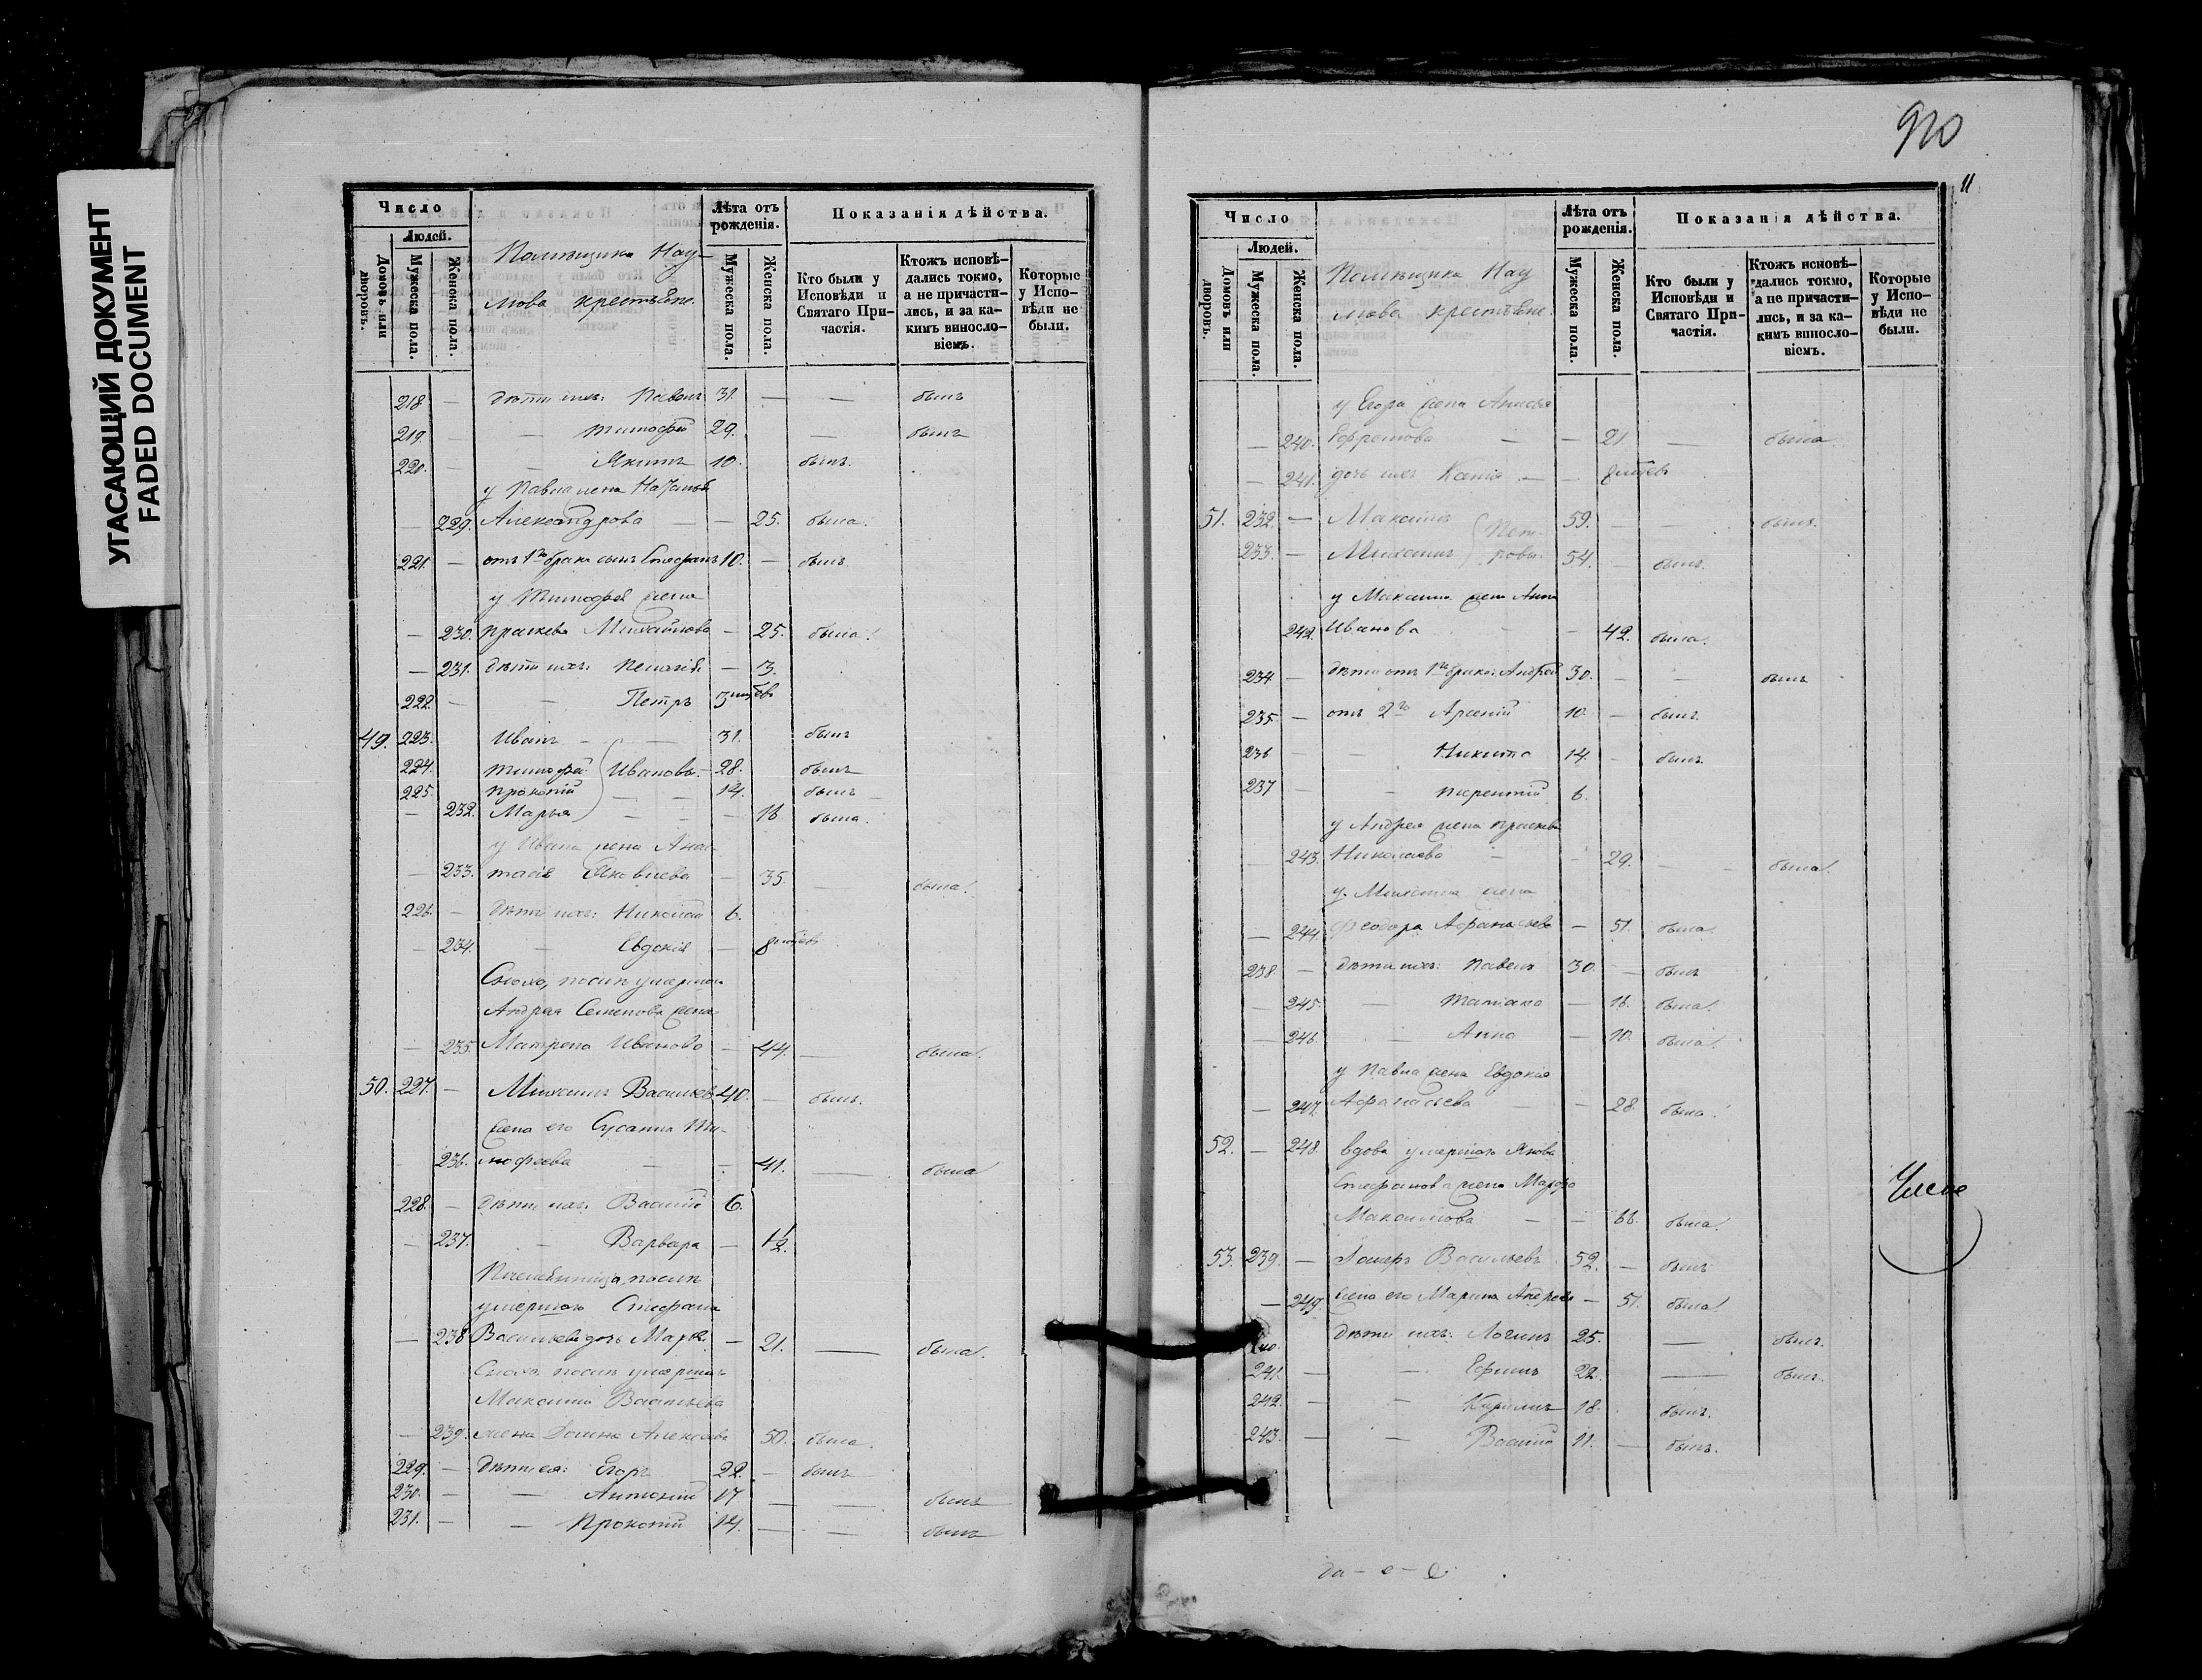 УГАСАЮЩИЙ ДОКУМЕНТ
FADED DOCUMENT
Число
Людей.
Домовъ или дворовъ.
Мужеска пола.
Женска пола.
Помѣщика Нау-
мова крестьяне.
Лѣта отъ рожденія.
Мужеска пола.
Женска пола.
Показанія дѣйства.
Кто были у Исповѣди и Святаго При-частія.
Ктожъ исповѣ-дались токмо, а не причасти-лись, и за ка-кимъ винosло-віемъ.
Которые у Испо-вѣди не были.
218 — дѣти ихъ: Павелъ 31. — — былъ
219. — — Тимофей 29. — былъ
220. — — Якимъ 10. былъ.
у Павла жена Наталья
— 229. Александрова — — 25. была.
221. — отъ 1го брака сынъ Стефанъ 10. — былъ
у Тимофея жена
— 230. Прасковья Михайлова — 25. была.
— 231. дѣти ихъ: Пелагія — 3.
222. — — Петръ 3 мѣсяцев
49. 223. Иванъ — — 31. былъ
224. Тимофей Ивановы — 28. былъ
225. Прокопій — — 14. былъ
— 232. Марья — — — 16 была.
у Ивана жена Анас-
— 233. тасія Яковлева — 35. — была.
226. — дѣти ихъ: Николай 6.
— 234. — Евдокія — 8 мѣсяцев
Сноха, послѣ умершаго
Андрея Семенова жена
— 235. Матрена Иванова — 44. — была.
50. 227. — Михаилъ Васильевъ 40. — былъ.
жена его Сусанна Ти-
236. мофеева — — 41. — была
228. — дѣти ихъ: Василій 6.
— 237. — Варвара — 1/2.
Племянница, послѣ
умершаго Стефана
— 238 Васильева дочь Марѳа — 21. — была.
Сноха, послѣ умершаго
Максима Васильева
— 239. жена Домна Алексеева 50. была.
229. — дѣти ея: Егоръ 22. — былъ
230. — — Антоній 17 — — былъ
231. — — Прокопій 14. — — былъ
920
11
Число
Людей.
Домовъ или дворовъ.
Мужеска пола.
Женска пола.
Помѣщика Нау
мова крестьяне.
Лѣта отъ рожденія.
Мужеска пола.
Женска пола.
Показанія дѣйства.
Кто были у Исповѣди и Святаго При-частія.
Ктожъ исповѣ-дались токмо, а не причасти-лись, и за ка-кимъ винoсло-віемъ.
Которые у Испо-вѣди не были.
у Егора жена Анисья
— 240. Ефремова — — 21 — была
— 241. дочь ихъ Ксенія — —
51. 232. — Максимъ Пет- 59. — — былъ.
233. — Михаилъ ровы. 54. — былъ.
у Максима жена Анна
242. Иванова — — 42. была.
234. — дѣти отъ 1го брака: Андрей 30. — — былъ
235. — отъ 2го Арсеній 10. — былъ.
236 — — Никита 14. — былъ.
237 — — 6.
у Андрея жена Прасковья
— 243. Николаева — — 29. — — была.
у Михаила жена
— 244. Феодора Афанасьева — 51. была.
238. — дѣти ихъ: Павелъ 30. — былъ
— 245. — Татіана — 16. была.
— 246. — Анна — 10. была.
у Павла жена Евдокія
— 247. Афанасьева — — 28. была.
52. — 248. вдова умершаго Якова
Стефанова жена Марфа
Максимова — — 66. была.
53. 239. — Васильевъ 52. — былъ
— 249. жена его Марина Андреева — 51. была.
240. дѣти ихъ: Логинъ 25. — былъ.
241. — — Ефимъ 22. — былъ.
242. — — Кирилъ 18. былъ.
243. — — Василій 11. — былъ.